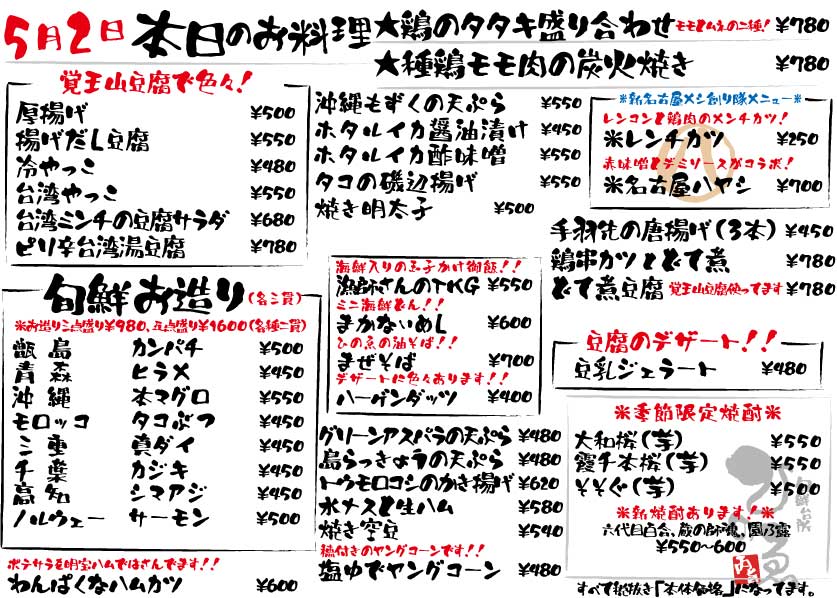 5月2日 本日のお料理
★鶏のタタキ盛り合わせ モモとムネの二種! ¥780
★種鶏モモ肉の炭火焼き ¥780
覚王山豆腐で色々!
厚揚げ ¥500
揚げだし豆腐 ¥550
冷やっこ ¥480
台湾やっこ ¥550
台湾ミンチの豆腐サラダ ¥680
ピリ辛台湾湯豆腐 ¥780
旬鮮お造り(各三貫)
※お造り三点盛り¥980、五点盛り¥1600(各種二貫)
甑島 カンパチ ¥500
青森 ヒラメ ¥450
沖縄 本マグロ ¥550
モロッコ タコぶつ ¥450
三重 真ダイ ¥450
千葉 カジキ ¥450
高知 シマアジ ¥450
ノルウェー サーモン ¥500
ポテサラを明宝ハムではさんでます!!
わんぱくなハムカツ ¥600
沖縄もずくの天ぷら ¥550
ホタルイカ醤油漬け ¥450
ホタルイカ酢味噌 ¥550
タコの磯辺揚げ ¥550
焼き明太子 ¥500
海鮮入りの玉子かけ御飯!!
漁師さんのTKG ¥550
ミニ海鮮どん!!
まかないめし ¥600
ひの魚の油そば!!
まぜそば ¥700
デザートに色々あります!!
ハーゲンダッツ ¥400
グリーンアスパラの天ぷら ¥480
島らっきょうの天ぷら ¥480
トウモロコシのかき揚げ ¥620
水ナスと生ハム ¥580
焼き空豆 ¥540
穂付きのヤングコーンです!!
塩ゆでヤングコーン ¥480
※新名古屋メシ創り隊メニュー※
レンコンと鶏肉のメンチカツ!
※レンチカツ ¥250
赤味噌とデミソースがコラボ!
※名古屋ハヤシ ¥700
手羽先の唐揚げ(3本) ¥450
鶏串カツとどて煮 ¥780
どて煮豆腐 覚王山豆腐使ってます ¥780
豆腐のデザート!!
豆乳ジェラート ¥480
※季節限定焼酎※
大和桜(芋) ¥550
霞千本桜(芋) ¥550
そそぐ(芋) ¥500
※新焼酎あります!※
六代目百合、蔵の師魂、園乃露
¥550~600
すべて税抜き「本体価格」になってます。
旬鮮台所